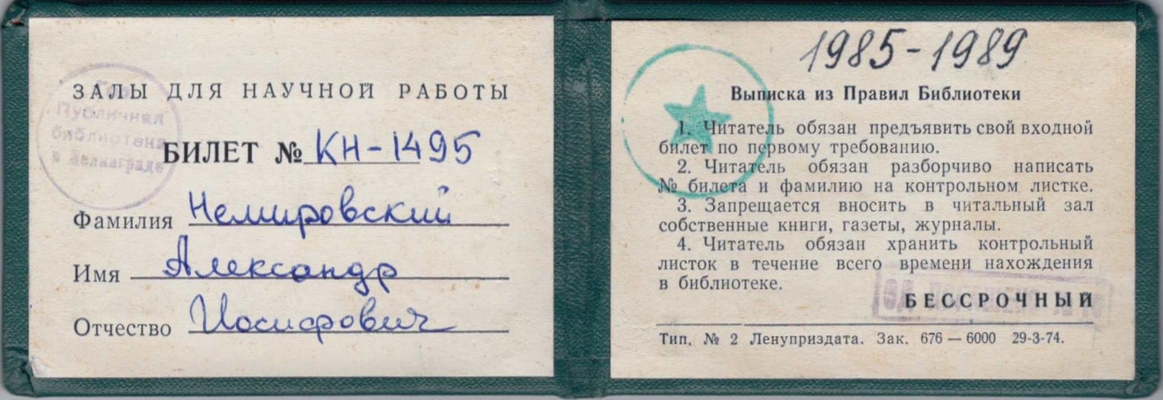 ЗАЛЫ ДЛЯ НАУЧНОЙ РАБОТЫ
Публичная
библиотека
в Ленинграде
БИЛЕТ № КН-1495
Фамилия Немировский
Имя Александр
Отчество Иосифович
1985-1989
Выписка из Правил Библиотеки
1. Читатель обязан предъявить свой входной
билет по первому требованию.
2. Читатель обязан разборчиво написать
№ билета и фамилию на контрольном листке.
3. Запрещается вносить в читальный зал
собственные книги, газеты, журналы.
4. Читатель обязан хранить контрольный
листок в течение всего времени нахождения
в библиотеке.
БЕССРОЧНЫЙ
Тип. № 2 Ленуприздата. Зак. 676 — 6000 29-3-74.